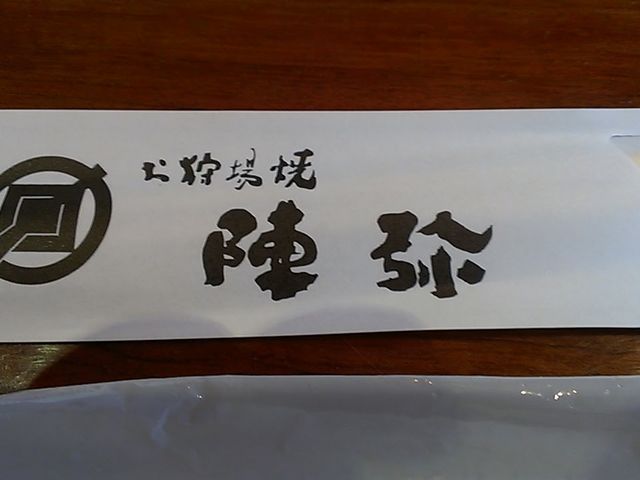 お狩場焼
陣弥